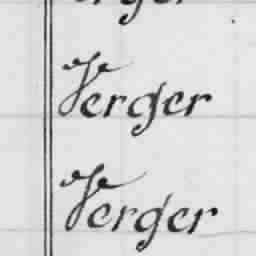 Verger
Verger